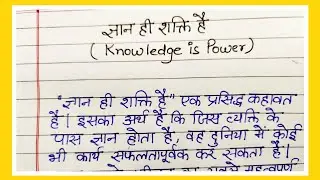 ज्ञान ही शक्ति है
( Knowledge is Power)
"ज्ञान ही शक्ति है" एक प्रसिद्ध कहावत
है। इसका अर्थ है कि जिस व्यक्ति के
पास ज्ञान होता है, वह दुनिया में कोई
भी कार्य सफलतापूर्वक कर सकता है।